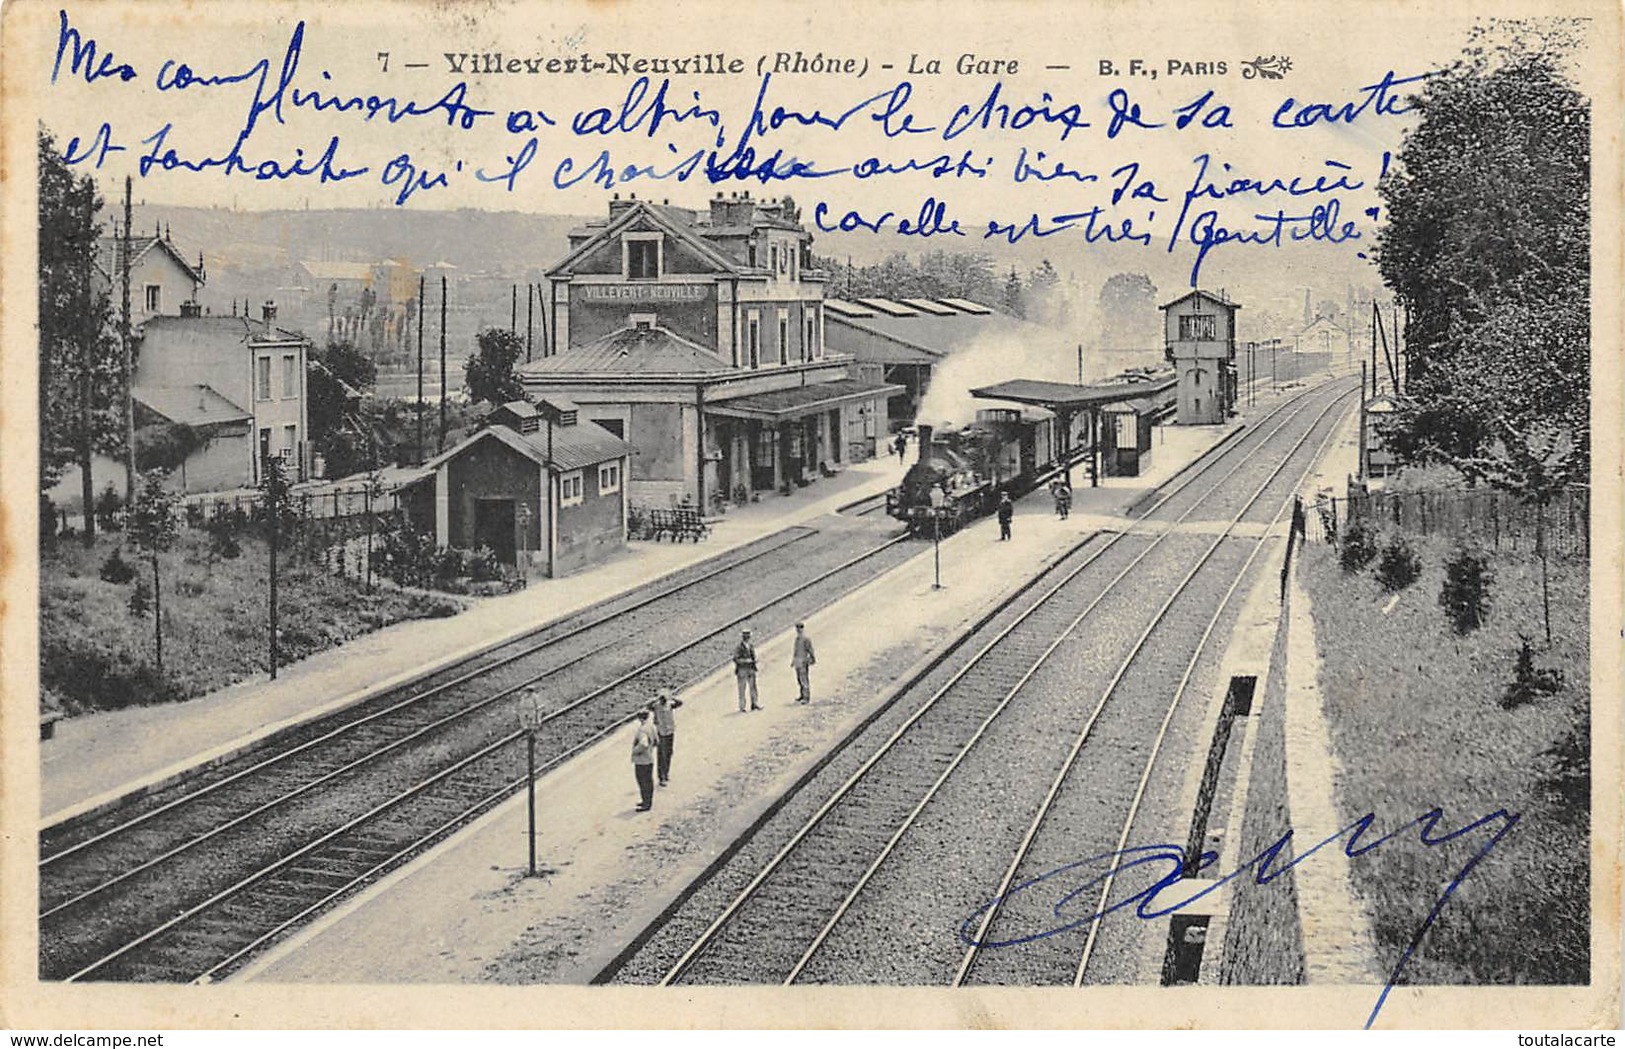 7 — Villevert-Neuville (Rhône) - La Gare — B. F., PARIS
Mes compliments à alpin, pour le choix de sa carte
et souhaite qu'il choisisse aussi bien sa fiancée !
car elle est très "Gentille"
VILLEVERT-NEUVILLE
My eBay.net name
toutalacarte